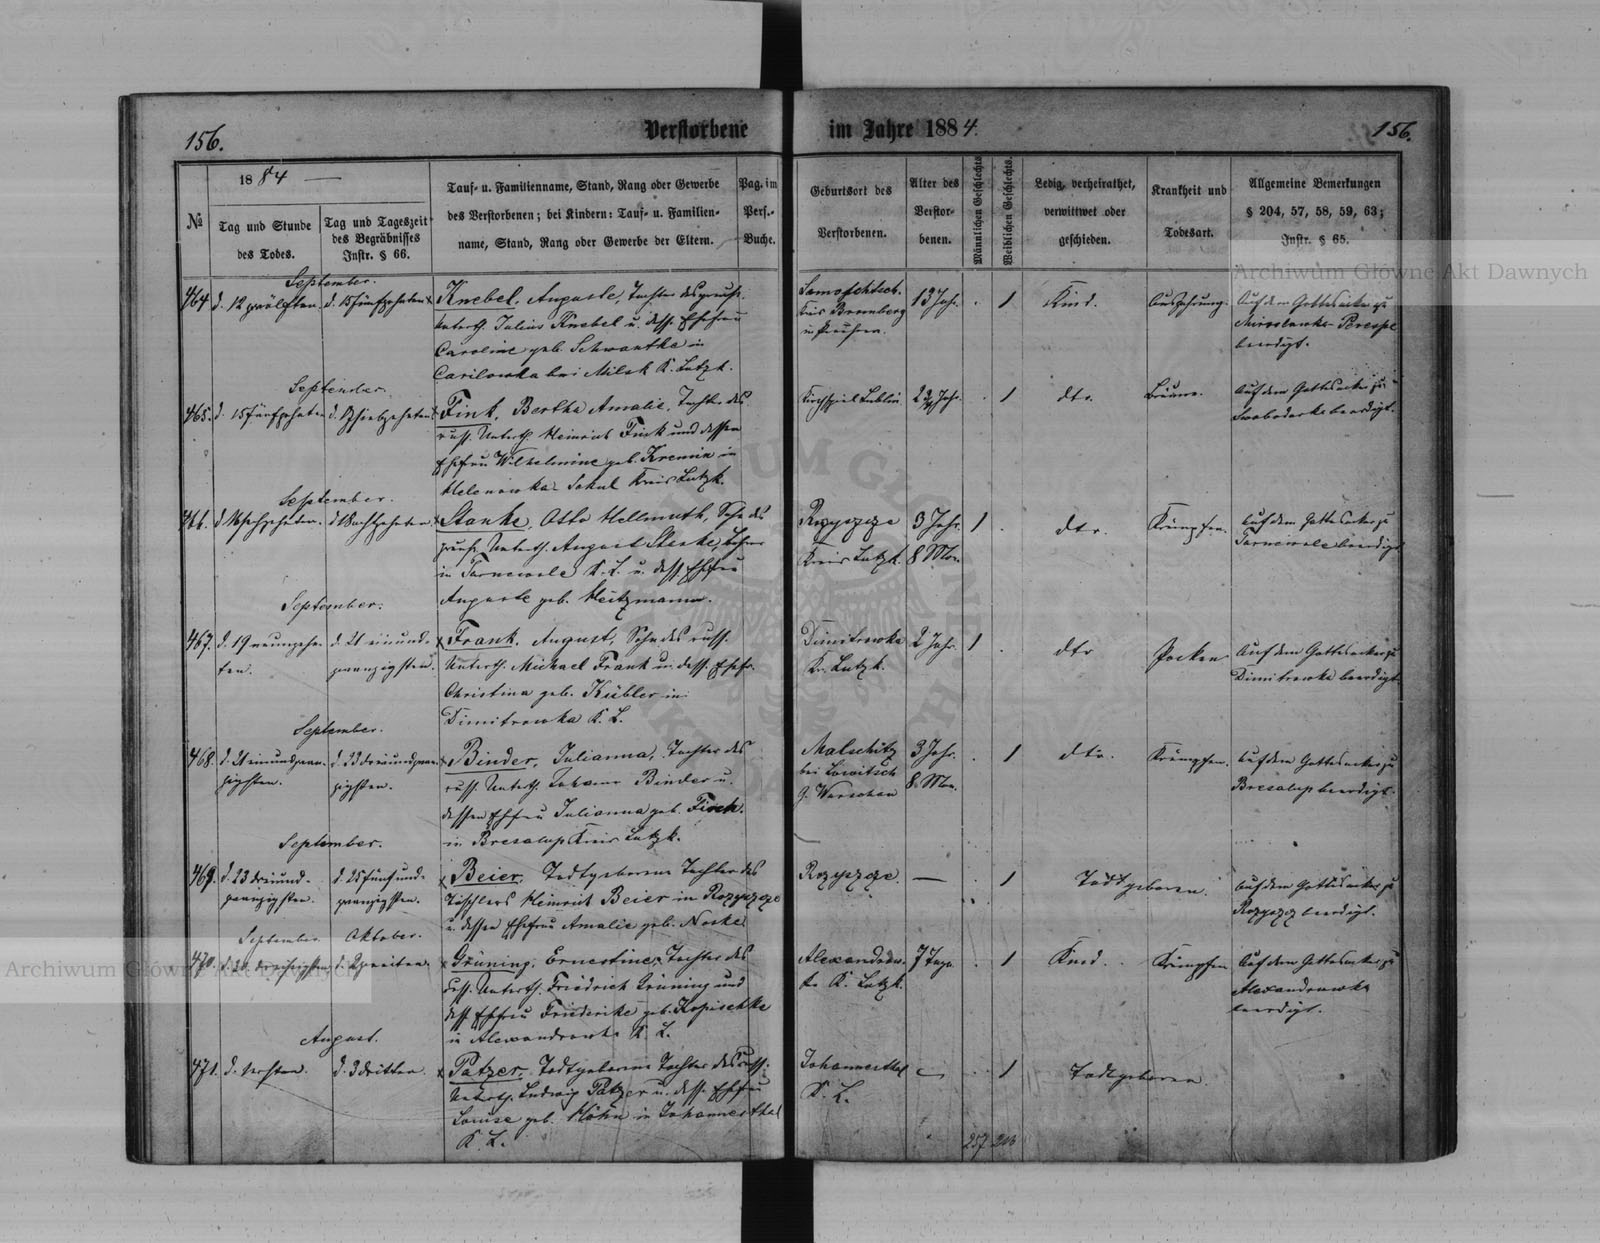 156.
Verstorbene
im Jahre 1884.
156.
№
1884
Tag und Stunde des Todes.
Tag und Tageszeit des Begräbnisses Instr. § 66.
Tauf- u. Familienname, Stand, Rang oder Gewerbe
des Verstorbenen; bei Kindern: Tauf- u. Familien-
name, Stand, Rang oder Gewerbe der Eltern.
Pag. im Pers.- Buche.
Geburtsort des Verstorbenen.
Alter des Verstor- benen.
Männlichen Geschlechts.
Weiblichen Geschlechts.
Ledig, verheirathet, verwittwet oder geschieden.
Krankheit und Todesart.
Allgemeine Bemerkungen § 204, 57, 58, 59, 63; Instr. § 65.
September.
464 d. 12 zwölften. d. 15 fünfzehnten Knebel, Auguste, Tochter des preuß. 13 Jahr. 1 Kind. Auszehrung. Auf dem Gottesacker zu
Unterth. Julius Knebel u. dess. Ehefrau Kreis Bromberg
Caroline geb. Schwantke in in Preußen. beerdigt.
bei K. Lutzk.
September.
465. d. 15 fünfzehnten Fink, Bertha Amalie, Tochter des Kirchspiel Lublin 1 dto. Bräune. Auf dem Gottesacker zu
russ. Unterth. Heinrich Fink und dessen beerdigt.
Ehefrau Wilhelmine geb. in
Helenowka Kreis Lutzk.
September.
466. d. 18 achtzehnten Stanke, Otto Hellmuth, Sohn des Rozyszcze 3 Jahr. 1 dto. Krämpfen. Auf dem Gottesacker zu
preuß. Unterth. August Kreis Lutzk. 8 Mon. beerdigt
in K. L. u. dess. Ehefrau
Auguste geb. Heitzmann.
September.
467. d. 19 neunzehn- d. 21 einund- Frank, August, Sohn des russ. Dimitrowka 2 Jahr. 1 dto Pocken Auf dem Gottesacker zu
ten. zwanzigsten. Unterth. Michael Frank u. dess. Ehefr. Kr. Lutzk. Dimitrowka beerdigt
Christina geb. Kübler in
Dimitrowka K. L.
September.
468. d. 21 einundzwan- d. 23 dreiundzwan- Binder, Julianna, Tochter des 3 Jahr. 1 dto. Krämpfen. Auf dem Gottesacker zu
zigsten. zigsten. russ. Unterth. Johann Binder u. bei Lowitsch 8 Mon. beerdigt.
dessen Ehefrau Julianna geb. G. Warschau
in Kreis Lutzk.
September.
469. d. 23 dreiund- d. 25 fünfund- Beier, Todtgeborene Tochter des Rozyszcze. — 1 Todtgeboren. Auf dem Gottesacker zu
zwanzigsten. zwanzigsten. Tischlers Heinrich Beier in Rozyszcze beerdigt.
u. dessen Ehefrau Amalie geb. Noske
September. Oktober.
470. d. 30 dreißigsten d. 2 zweiten. Grüning, Ernestine, Tochter des 7 Tage 1 Kind. Krämpfen Auf dem Gottesacker zu
russ. Unterth. Friedrich Grüning und K. Lutzk. Alexandrowka
dess. Ehefrau Friederike geb. Kopischke beerdigt.
in Alexandrowka K. L.
August.
471. d. 1 ersten. d. 3 dritten. Patzer, Todtgeborene Tochter des russ. Johannesthal — 1 Todtgeboren.
Unterth. Ludwig Patzer u. dess. Ehefrau K. L.
Louise geb. Höhn in Johannesthal
K. L.
257
Archiwum Główne Akt Dawnych
Archiwum Główne Akt Dawnych